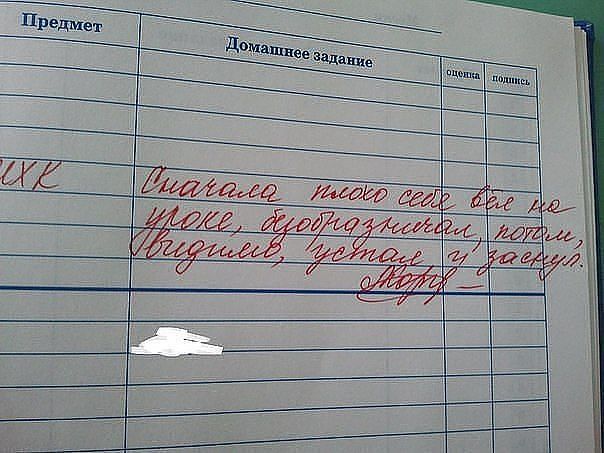 Предмет
Домашнее задание
оценка
подпись
МХК
Сначала плохо себя вёл на
уроке, безобразничал, потом,
видимо, устал и заснул.